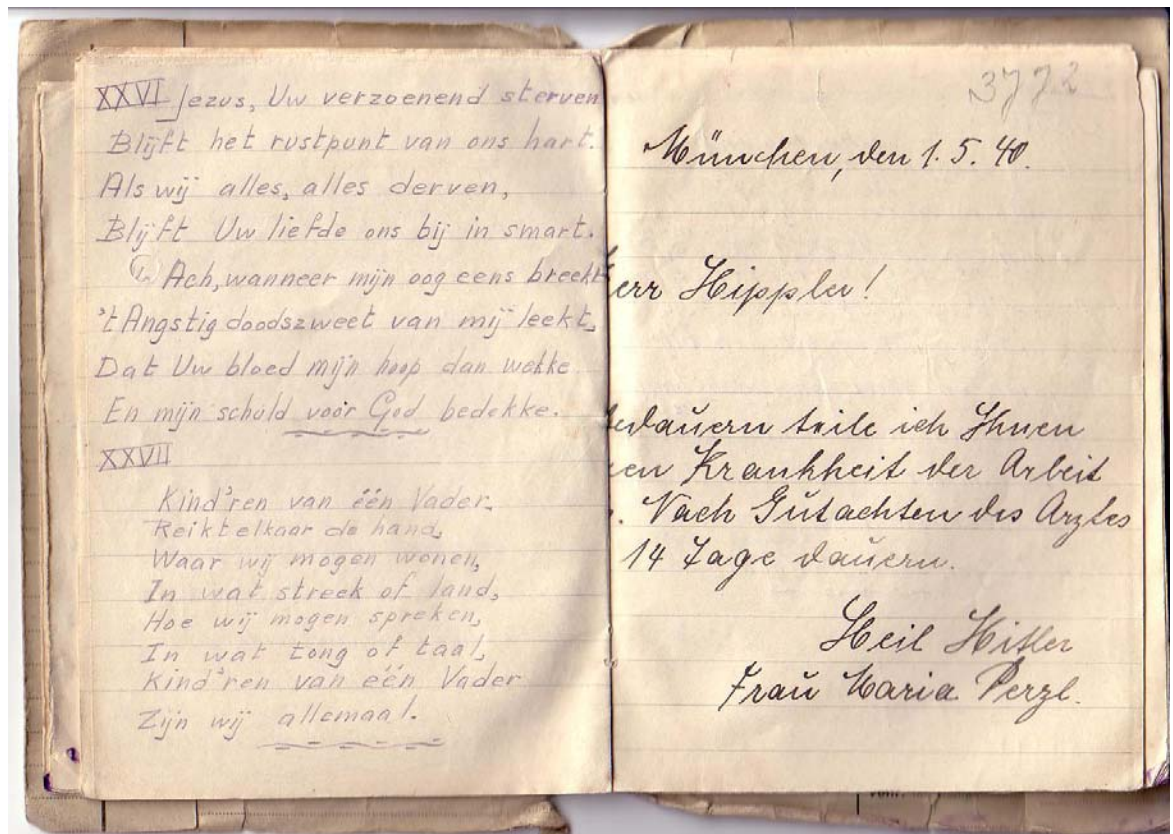 XXVI Jezus, Uw verzoenend sterven
Blijft het rustpunt van ons hart.
Als wij alles, alles derven,
Blijft Uw liefde ons bij in smart.
Ach, wanneer mijn oog eens breekt
't Angstig doodszweet van mij leekt,
Dat Uw bloed mijn hoop dan wekke
En mijn schuld voor God bedekke.
XXVII
Kind'ren van één Vader
Reikt elkaar de hand,
Waar wij mogen wonen,
In wat streek of land,
Hoe wij mogen spreken,
In wat tong of taal,
Kind'ren van één Vader
Zijn wij allemaal.
3772
München, den 1. 5. 40.
err Hippler!
edauern teile ich Ihnen
en Krankheit der Arbeit
. Nach Gutachten des Arztes
14 Tage dauern.
Heil Hitler
Frau Maria Perzl.